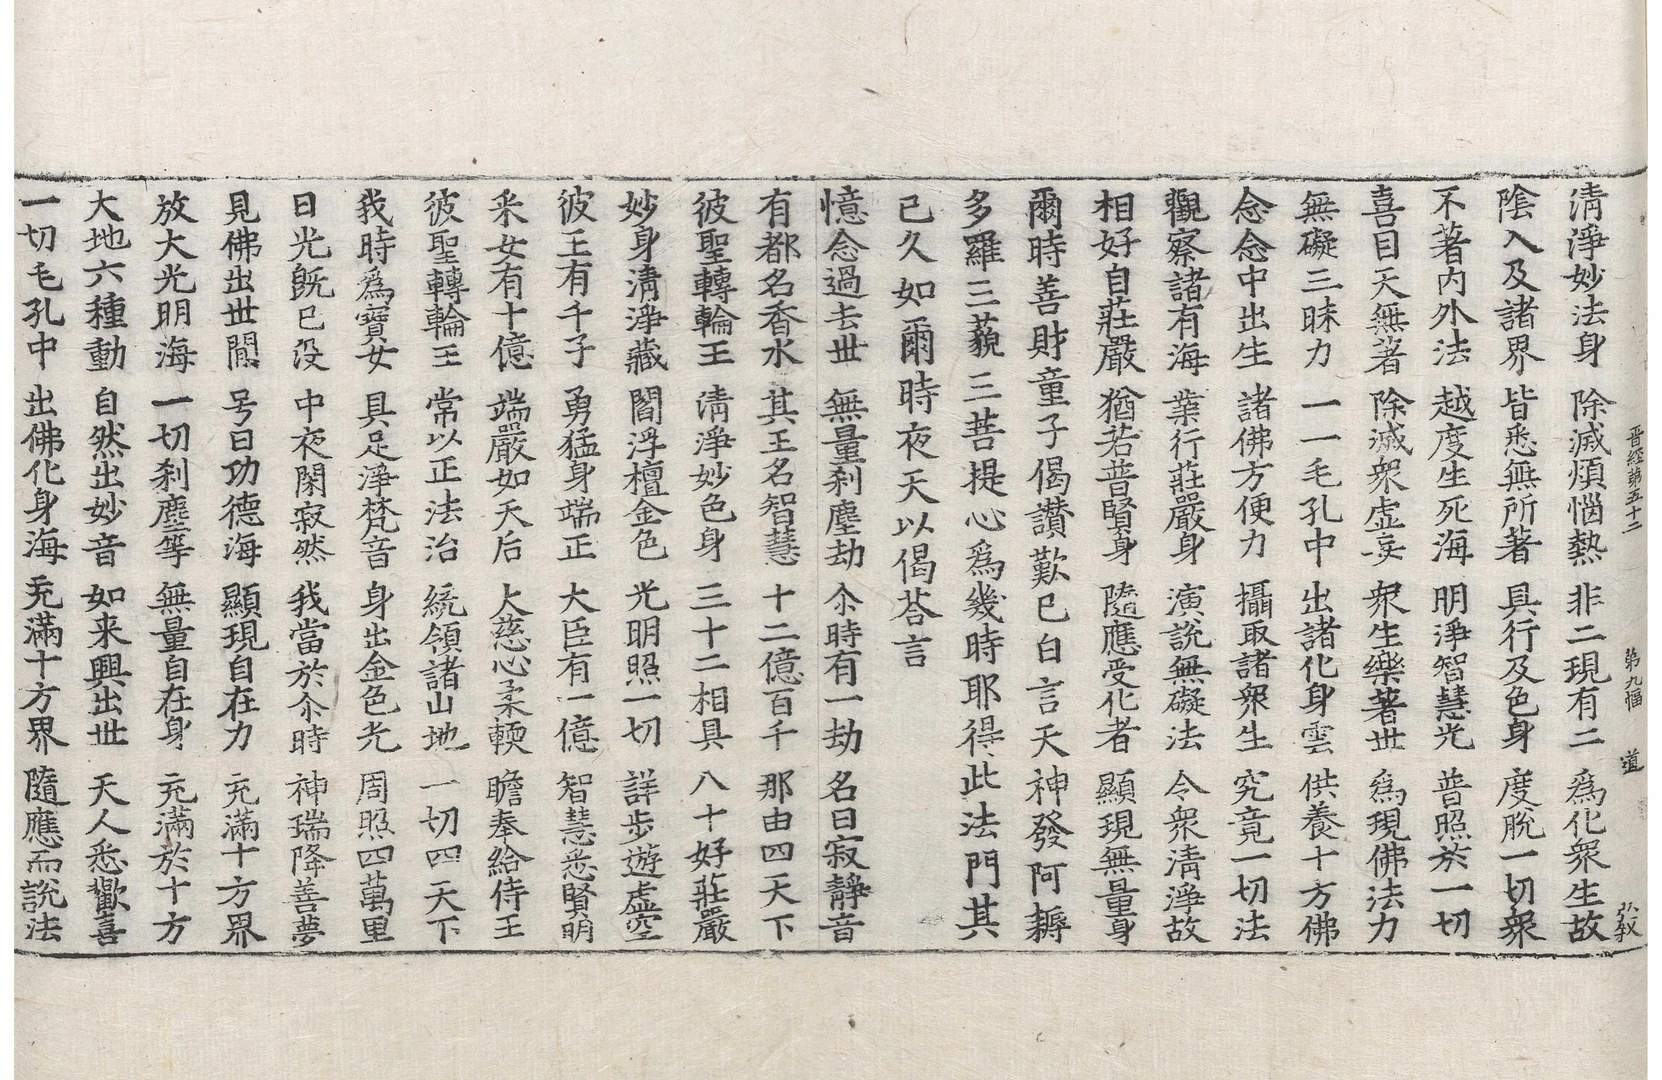 晋経第五十二　第九幅　道　弘教
清淨妙法身　除滅煩惱熱　非二現有二　爲化衆生故
隂入及諸界　皆悉無所著　具行及色身　度脫一切衆
不著内外法　越度生死海　明淨智慧光　普照於一切
喜目天無著　除滅衆虛妄　衆生樂著世　爲現佛法力
無礙三昧力　一一毛孔中　出諸化身雲　供養十方佛
念念中出生　諸佛方便力　攝取諸衆生　究竟一切法
觀察諸有海　業行莊嚴身　演說無礙法　令衆淸淨故
相好自莊嚴　猶若普賢身　隨應受化者　顯現無量身
爾時善財童子偈讃歎已白言天神發阿耨
多羅三藐三菩提心爲幾時耶得此法門其
已久如爾時夜天以偈荅言
憶念過去世　無量刹塵劫　尒時有一劫　名曰寂靜音
有都名香水　其王名智慧　十二億百千　那由四天下
彼聖轉輪王　清淨妙色身　三十二相具　八十好莊嚴
妙身淸淨藏　閻浮檀金色　光明照一切　詳步遊虛空
彼王有千子　勇猛身端正　大臣有一億　智慧悉賢明
采女有十億　端嚴如天后　大慈心柔軟　瞻奉給侍王
彼聖轉輪王　常以正法治　統領諸山地　一切四天下
我時爲寶女　具足淨梵音　身出金色光　周照四萬里
日光旣已没　中夜閑寂然　我當於尒時　神瑞降善夢
見佛出世間　号曰功德海　顯現自在力　充滿十方界
放大光明海　一切刹塵等　無量自在身　充滿於十方
大地六種動　自然出妙音　如来興出世　天人悉歡喜
一切毛孔中　出佛化身海　充滿十方界　隨應而説法